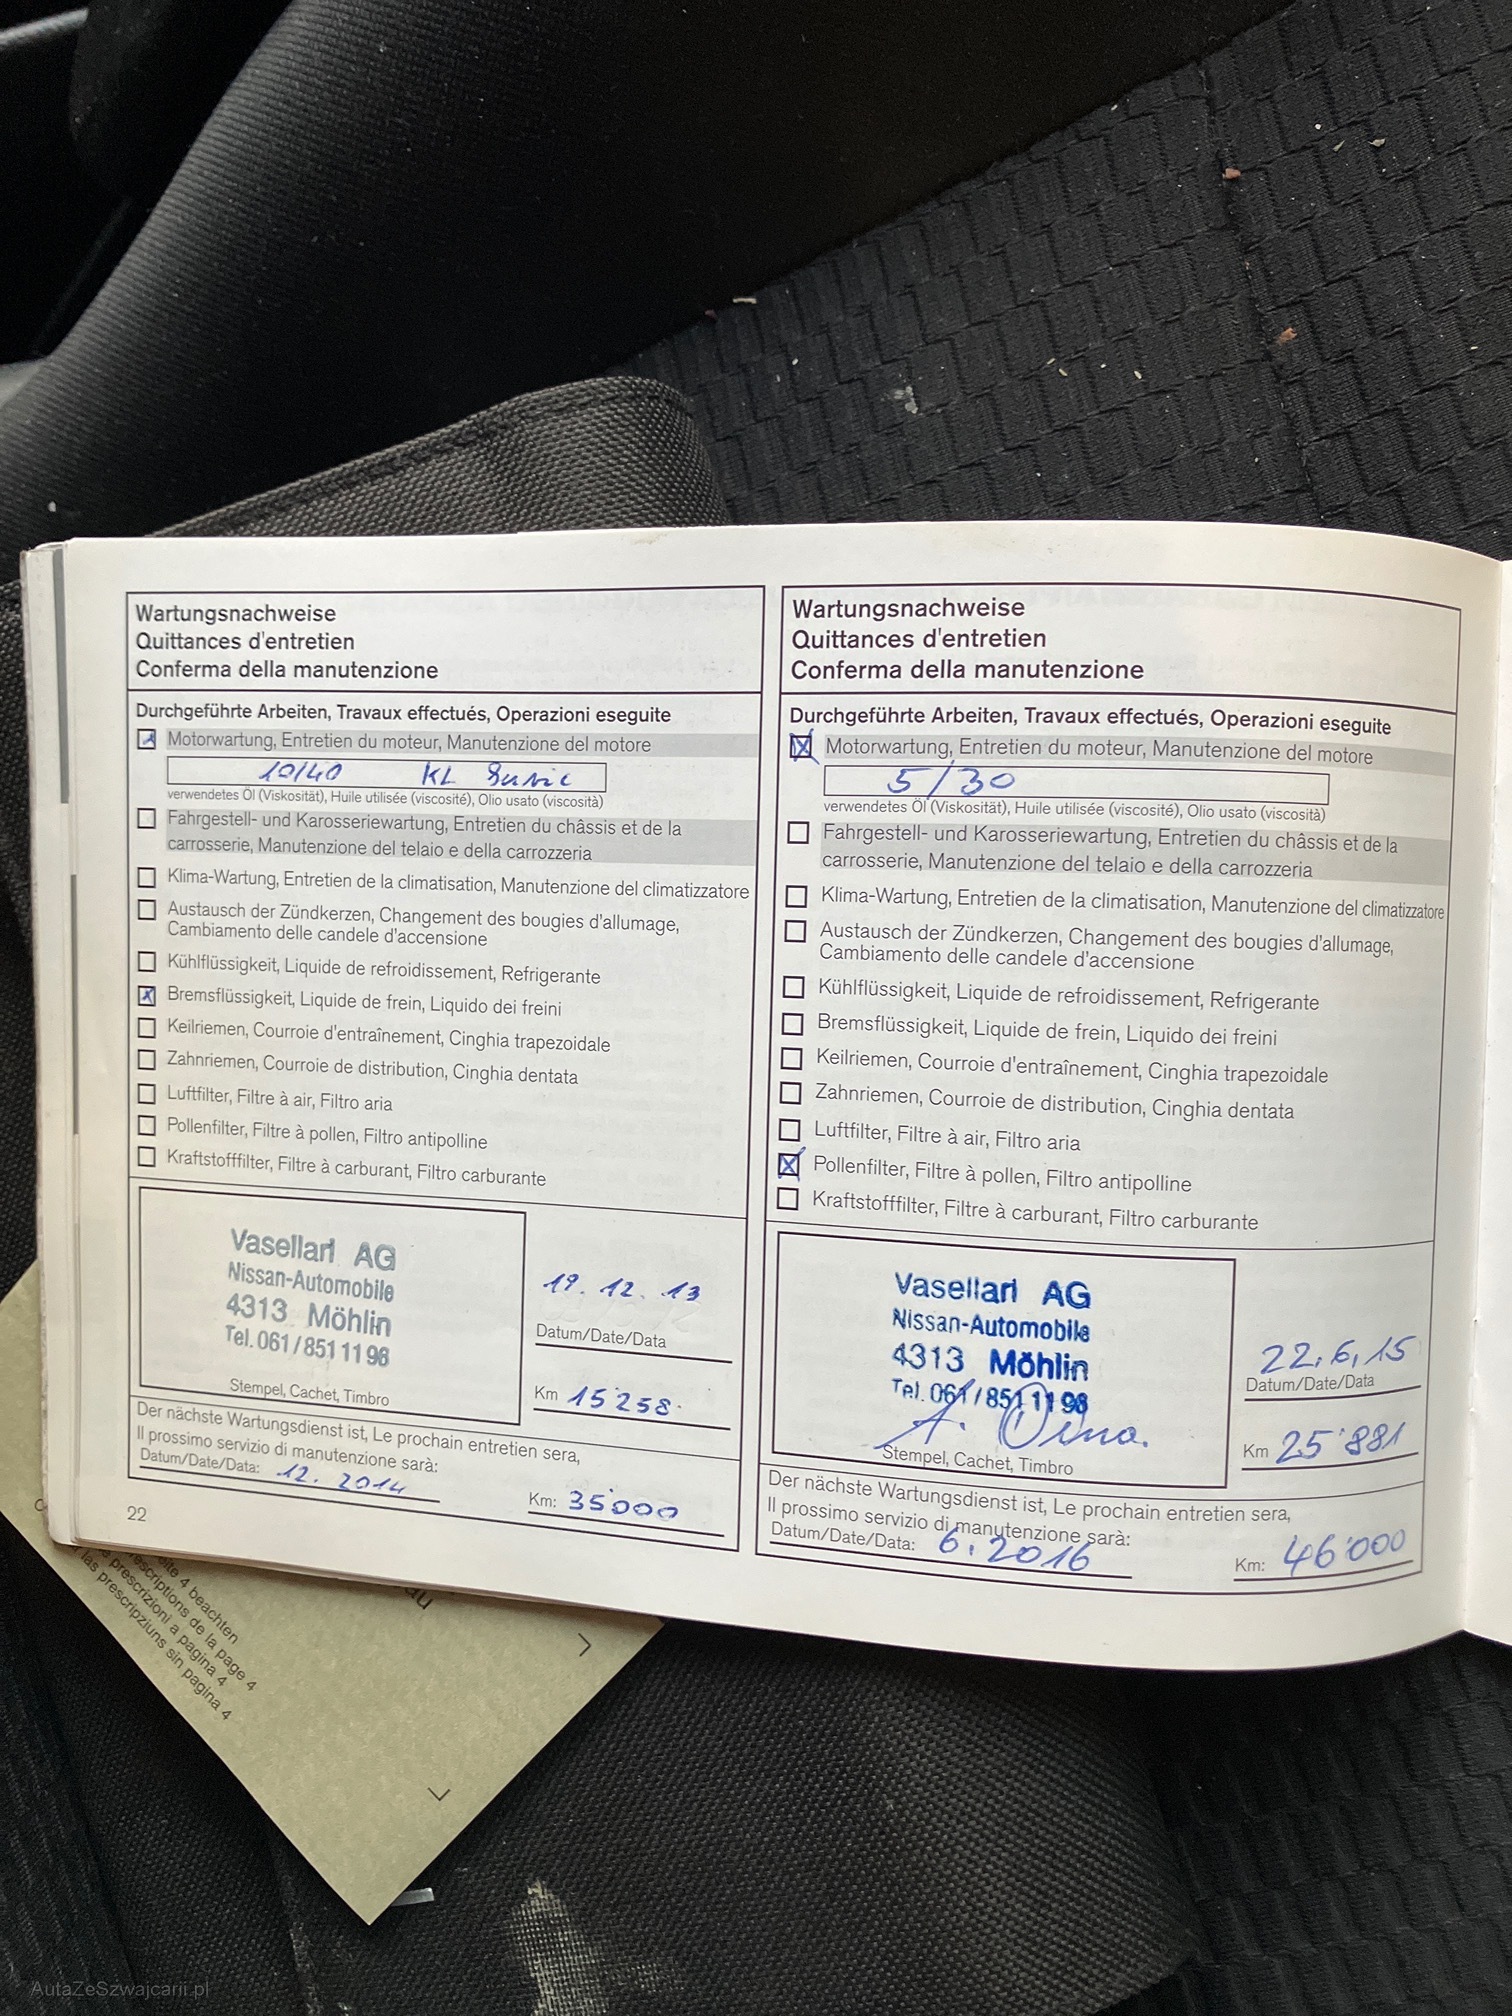 Wartungsnachweise
Quittances d'entretien
Conferma della manutenzione
Durchgeführte Arbeiten, Travaux effectués, Operazioni eseguite
Motorwartung, Entretien du moteur, Manutenzione del motore
10/40 KL
verwendetes Öl (Viskosität), Huile utilisée (viscosité), Olio usato (viscosità)
Fahrgestell- und Karosseriewartung, Entretien du châssis et de la
carrosserie, Manutenzione del telaio e della carrozzeria
Klima-Wartung, Entretien de la climatisation, Manutenzione del climatizzatore
Austausch der Zündkerzen, Changement des bougies d'allumage,
Cambiamento delle candele d'accensione
Kühlflüssigkeit, Liquide de refroidissement, Refrigerante
Bremsflüssigkeit, Liquide de frein, Liquido dei freini
Keilriemen, Courroie d'entraînement, Cinghia trapezoidale
Zahnriemen, Courroie de distribution, Cinghia dentata
Luftfilter, Filtre à air, Filtro aria
Pollenfilter, Filtre à pollen, Filtro antipolline
Kraftstofffilter, Filtre à carburant, Filtro carburante
Vasellari AG
Nissan-Automobile
4313 Möhlin
Tel. 061/851 11 98
Stempel, Cachet, Timbro
19.12.13
Datum/Date/Data
Km 15'258
Der nächste Wartungsdienst ist, Le prochain entretien sera,
Il prossimo servizio di manutenzione sarà:
Datum/Date/Data: 12.2014
Km: 35'000
22
Wartungsnachweise
Quittances d'entretien
Conferma della manutenzione
Durchgeführte Arbeiten, Travaux effectués, Operazioni eseguite
Motorwartung, Entretien du moteur, Manutenzione del motore
5/30
verwendetes Öl (Viskosität), Huile utilisée (viscosité), Olio usato (viscosità)
Fahrgestell- und Karosseriewartung, Entretien du châssis et de la
carrosserie, Manutenzione del telaio e della carrozzeria
Klima-Wartung, Entretien de la climatisation, Manutenzione del climatizzatore
Austausch der Zündkerzen, Changement des bougies d'allumage,
Cambiamento delle candele d'accensione
Kühlflüssigkeit, Liquide de refroidissement, Refrigerante
Bremsflüssigkeit, Liquide de frein, Liquido dei freini
Keilriemen, Courroie d'entraînement, Cinghia trapezoidale
Zahnriemen, Courroie de distribution, Cinghia dentata
Luftfilter, Filtre à air, Filtro aria
Pollenfilter, Filtre à pollen, Filtro antipolline
Kraftstofffilter, Filtre à carburant, Filtro carburante
Vasellari AG
Nissan-Automobile
4313 Möhlin
Tel. 061/851 11 98
Stempel, Cachet, Timbro
22.6.15
Datum/Date/Data
Km 25'881
Der nächste Wartungsdienst ist, Le prochain entretien sera,
Il prossimo servizio di manutenzione sarà:
Datum/Date/Data: 6.2016
Km: 46'000
4 beachten
escriptions de la page 4
prescrizioni a pagina 4
las prescripziuns sin pagina 4
AutaZeSzwajcarii.pl